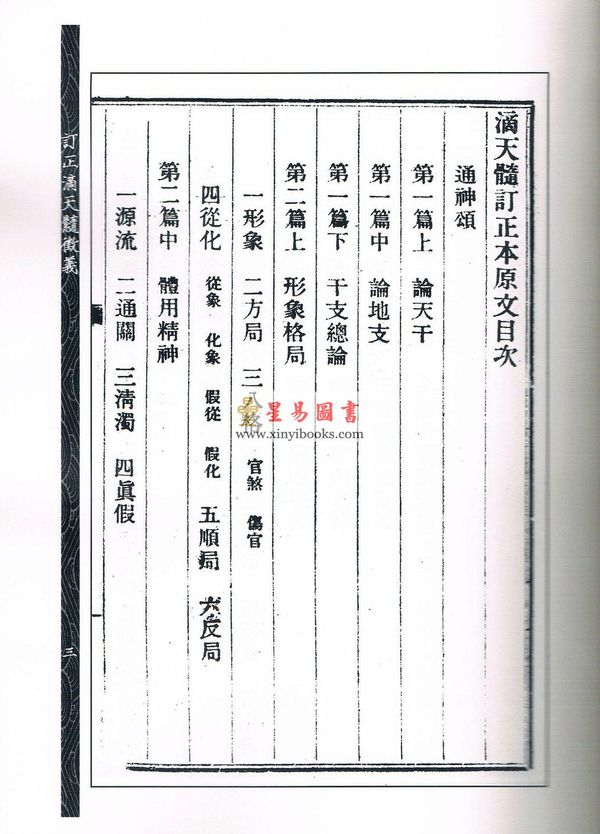 滴天髓訂正本原文目次
通神頌
第一篇上 論天干
第一篇中 論地支
第一篇下 干支總論
第二篇上 形象格局
一形象 二方局 三八格 官煞 傷官
四從化 從象 化象 假從 假化 五順局 六反局
第二篇中 體用精神
一源流 二通關 三淸濁 四眞假
訂正滴天髓徵義
三
星易圖書
www.xinyibooks.com